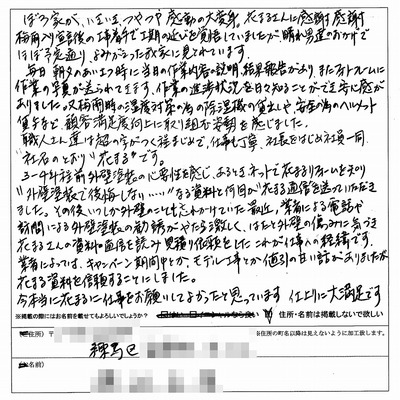 ぼろ家が、いまいまつやつや 感動の大変身。花まるさんに感謝感謝
梅雨入り宣言後の工事着手で工期の延びを覚悟していましたが晴れ男達のおかげで
ほぼ予定通り よみがえった我家に見とれています。
毎日 朝夕のあいさつ時に当日の作業内容の説明、結果報告があり、またフォトフレームに
作業の写真が送られてきます。作業の進捗状況を日々知ることができ安心感が
ありました。又梅雨時の湿度対策の為の除湿機の貸出しや安全の為のヘルメット
貸与など、顧客満足度向上に取り組む姿勢を感じました。
職人さん達は超の字がつく程まじめで、仕事も丁寧、社長をはじめ社員一同、
"社名のとおり""花まる"です。
3〜4年程前 外壁塗装の必要性を感じ、あるときネットで花まるリフォームを知り
"外壁塗装で後悔しない……"なる資料と何回か花まる通信を送っていただき
ました。その後いつしか外壁のことも忘れかけていた最近、業者による電話や
訪問による外壁塗装の勧誘がやたら激しく、はたと外壁の傷みに気づき
花まるさんの資料や通信を読み 見積り依頼をしたこれが仕事への経緯です。
業者によっては、キャンペーン期間中とか、モデル工事とか値引の甘い話がありましたが
花まる資料を信頼することにしました。
今本当に花まるに仕事をお願いしてよかったと思っています 仕上りに大満足です
※掲載の際にはお名前を載せてもよろしいでしょうか? 住所・名前は掲載しないで欲しい
住所）〒 ※住所の町名以降は見えないように加工致します。
練馬区
名前）